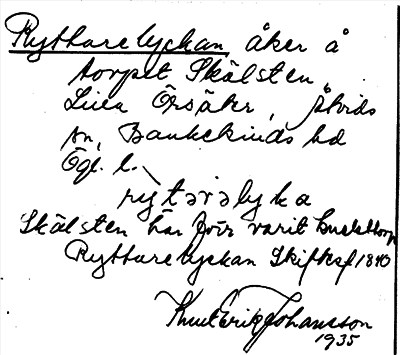 Ryttarelyckan åker å
torpet Skälsten
Lilla Örsäter, Åtvids
sn, Bankekinds hd
Ögl. l.
rytarəlyka
Skälsten har förr varit
Ryttarelyckan Skifteskf 1840
Knut Erik Johansson
1935